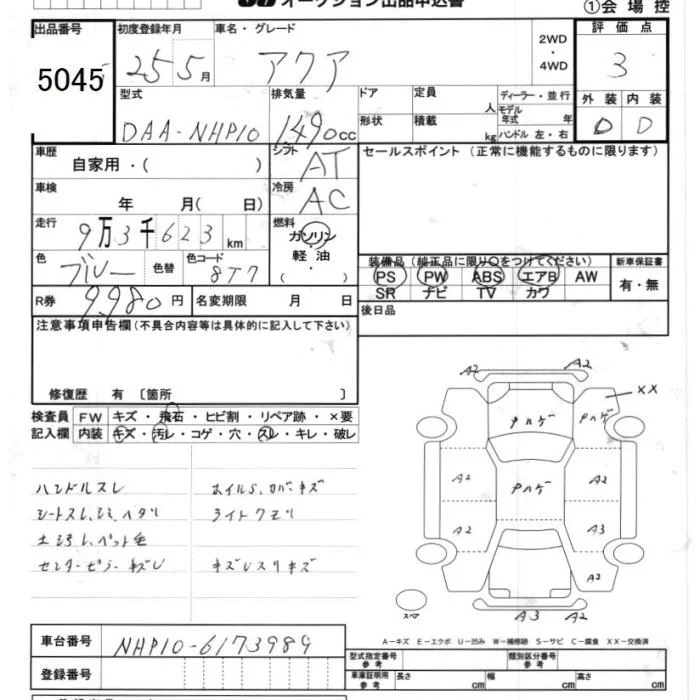 オークション出品申込書 ①会場控
出品番号 初度登録年月 車名・グレード 2WD・4WD 評価点
5045 25 5月 アクア 3
型式 排気量 ドア 定員 人 ディーラー・並行 外装 内装
DAA-NHP10 1490cc 形状 積載 kg モデル年式 年 ハンドル 左・右 D D
車歴 自家用・( ) シフト AT セールスポイント (正常に機能するものに限ります)
車検 年 月( 日) 冷房 AC
走行 9万3千623km 燃料 ガソリン・軽油・( )
色 ブルー 色替 色コード 8T7 装備品 (純正品に限り○をつけてください) 新車保証書
PS PW ABS エアB AW 有・無
SR ナビ TV カワ
R券 9,980円 名変期限 月 日 後日品
注意事項申告欄 (不具合内容等は具体的に記入して下さい)
修復歴 有 〔箇所 〕
検査員 FW キズ・飛石・ヒビ割・リペア跡・×要
記入欄 内装 キズ・汚レ・コゲ・穴・スレ・キレ・破レ
ハンドルスレ ホイルS,カバーキズ
シートスレ,シミ,ヘタリ ライトクモリ
センターピラーキズ
A2 A2
XX
Pハゲ Pハゲ
A2 Pハゲ A2
A2 A3
A2
スペア A3 A2
A-キズ E-エクボ U-凹み W-補修跡 S-サビ C-腐食 XX-交換済
車台番号 NHP10-6173989
型式指定番号 参考 類別区分番号 参考
登録番号 車庫証明用 参考 長さ cm 幅 cm 高さ cm